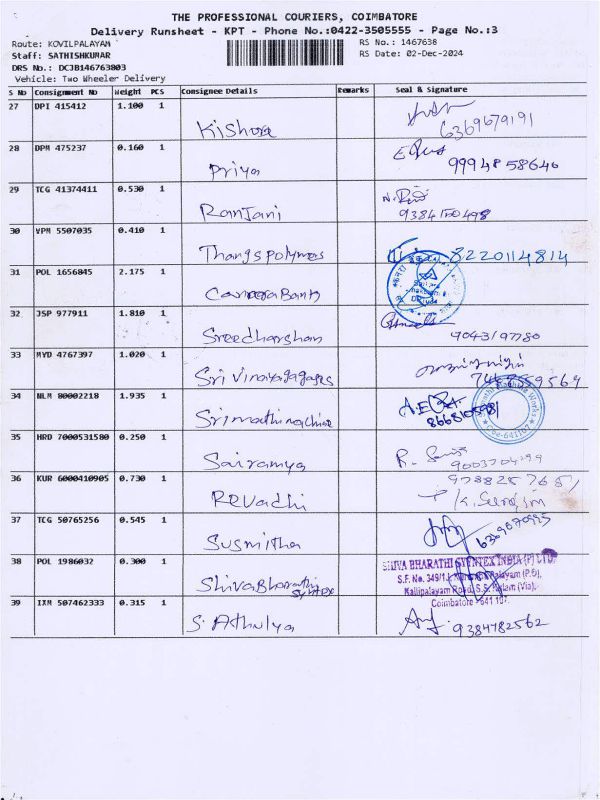 THE PROFESSIONAL COURIERS, COIMBATORE
Delivery Runsheet - KPT - Phone No.:0422-3505555 - Page No.:3
Route: KOVILPALAYAM
RS No.: 1467638
Staff: SATHISHKUMAR
RS Date: 02-Dec-2024
DRS No.: DCJB146763803
Vehicle: Two Wheeler Delivery
S No Consignment No Weight PCS Consignee Details Remarks Seal & Signature
27 DPI 415412 1.100 1
Kishore 6369679191
28 DPM 475237 0.160 1
Priya 9994858640
29 TCG 41374411 0.530 1
Ranjani 9384150498
30 VPM 5507035 0.410 1
Thangs polymers 8220114814
31 POL 1656845 2.175 1
Canara Bank
32 JSP 977911 1.810 1
Sreedharshan 9043197780
33 MYD 4767397 1.020 1
Sri Vinayaga
34 NLM 80002218 1.935 1
Sri mathi machine 8668105981
35 HRD 7000531580 0.250 1
Sairamya 9003704299
36 KUR 6000410905 0.730 1
Revadhi
37 TCG 50765256 0.545 1
Susmitha 6369870925
38 POL 1986032 0.300 1
SHIVA BHARATHI SYNTEX INDIA (P) LTD
S.F. No. 349/1,
Kallipalayam Road, S.S. Kulam (Via),
Coimbatore - 641 107.
Shiva Bharathi
Syntex
39 IXM 507462333 0.315 1
S. Athulya 9384782562